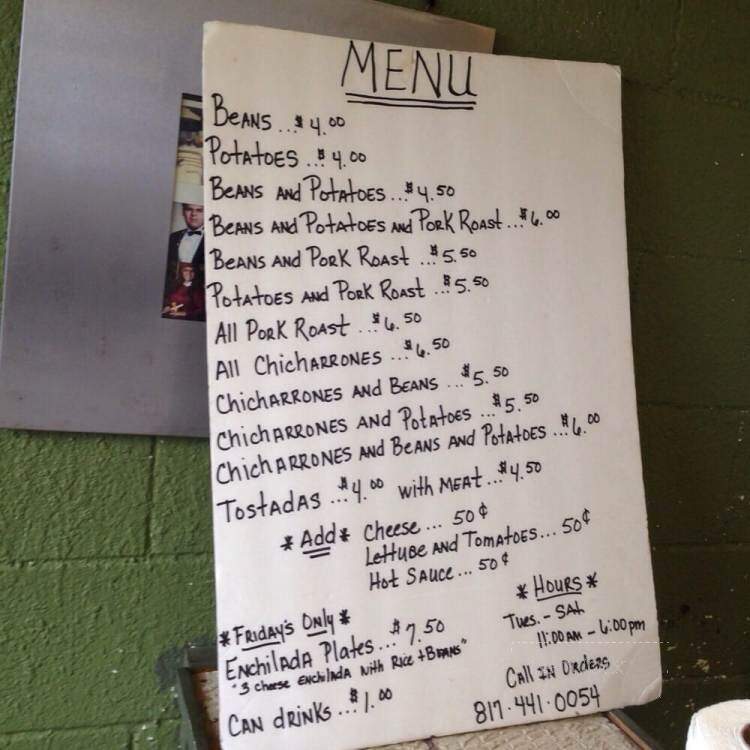 MENU
BEANS ... $4.00
POTATOES ... $4.00
BEANS AND POTATOES ... $4.50
BEANS AND POTATOES AND PORK ROAST ... $6.00
BEANS AND PORK ROAST ... $5.50
POTATOES AND PORK ROAST ... $5.50
All PORK ROAST ... $6.50
All ChichARRONES ... $6.50
ChichARRONES AND BEANS ... $5.50
ChichARRONES AND POTATOES ... $5.50
ChichARRONES AND BEANS AND POTATOES ... $6.00
TOSTADAS ... $4.00 with MEAT ... $4.50
* Add * Cheese ... 50¢
LETTUBE AND TOMATOES ... 50¢
Hot SAUCE ... 50¢
* FRIDAY'S ONLY *
ENCHILADA Plates ... $7.50
"3 cheese ENCHILADA With Rice + BEANS"
CAN dRINKS ... $1.00
* HOURS *
TUES. - SAt
11:00 AM - 6:00 pm
Call IN ORDERS
817.441.0054